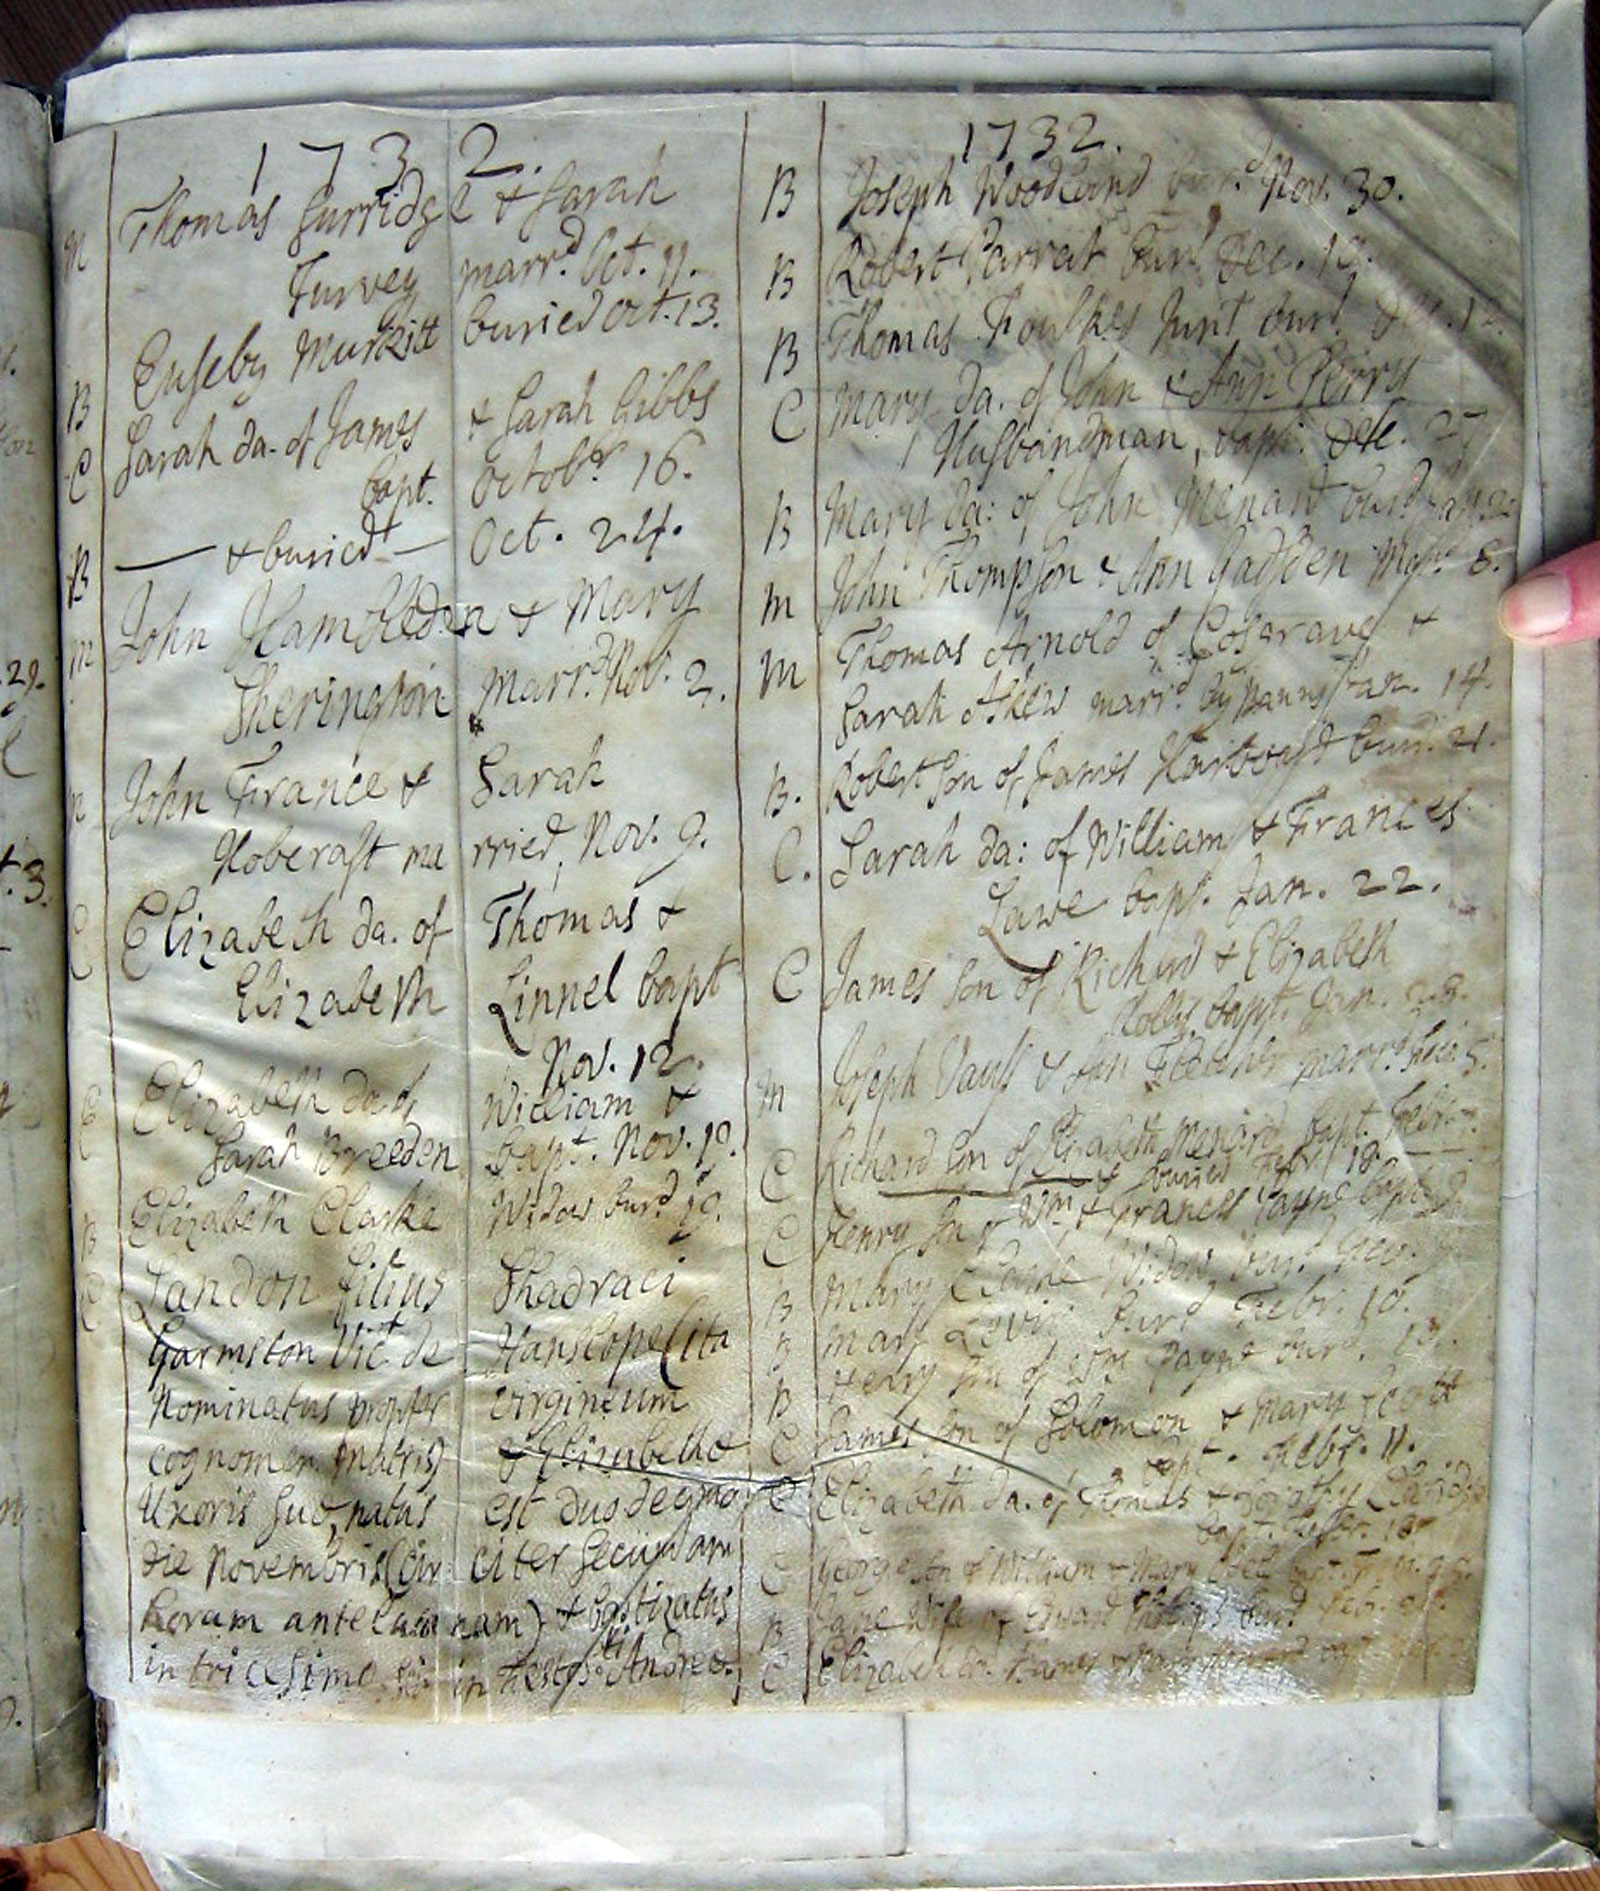 1732.
M Thomas Surridge & Sarah
Turvey marrd. Oct. 11.
B Euseby Murkitt buried Oct. 13.
C Sarah da. of James & Sarah Gibbs
bapt. Octobr. 16.
B — & buried — Oct. 24.
M John Hambleden & Mary
Sherington Marrd. Nov. 2.
M John France & Sarah
Hobcraft married, Nov. 9.
C Elizabeth da. of Thomas &
Elizabeth Linnel bapt
Nov. 12.
C Elizabeth da. of William &
Sarah Breeden bapt. Nov. 19.
B Elizabeth Clarke Widow burd. 19.
C Landon filius Shadraci
Garmston Vic. de Hanslope (ita
Nominatus propter virgineum
cognomen matris) & Elizabethæ
Uxoris suæ, natus est duodecimo
die Novembris (circiter secundam
horam antelucanam) & baptizatus
in tricesimo in Festo Sti. Andreæ.
1732.
B Joseph Woodland burd. Nov. 30.
B Robert Parrat burd. Dec.
B Thomas Foulkes Junr. burd. Dec.
C Mary da. of John & Ann Perry
Husbandman, bapt. Dec. 27
B Mary da: of John Menard burd. Jan. 2.
M John Thompson & Ann Gadsden Mard. 8.
M Thomas Arnold of Cosgrave &
Sarah Askew marrd. by Banns Jan. 14.
B. Robert Son of James burd. 21.
C. Sarah da: of William & Frances
Lawe bapt. Jan. 22.
C James Son of Richard & Elizabeth
bapt. Jan. 28.
M Joseph & Ann marrd. Feb. 5.
C Richard Son of Elizabeth Menard bapt. Febr.
& buried Febr. 18.
C Henry Son of Wm. & Frances Payne bapt.
B Mary Widow burd. Feb.
B Mary burd. Febr. 10.
B Henry Son of Wm. Payne burd.
C James Son of Solomon & Mary Scott
bapt. Febr. 11.
C Elizabeth da. of Thomas & Dorothy
bapt. Febr. 18
C George Son of William & Mary
B Jane Wife of Edward Philips burd. Feb.
C Elizabeth da. James & Mary